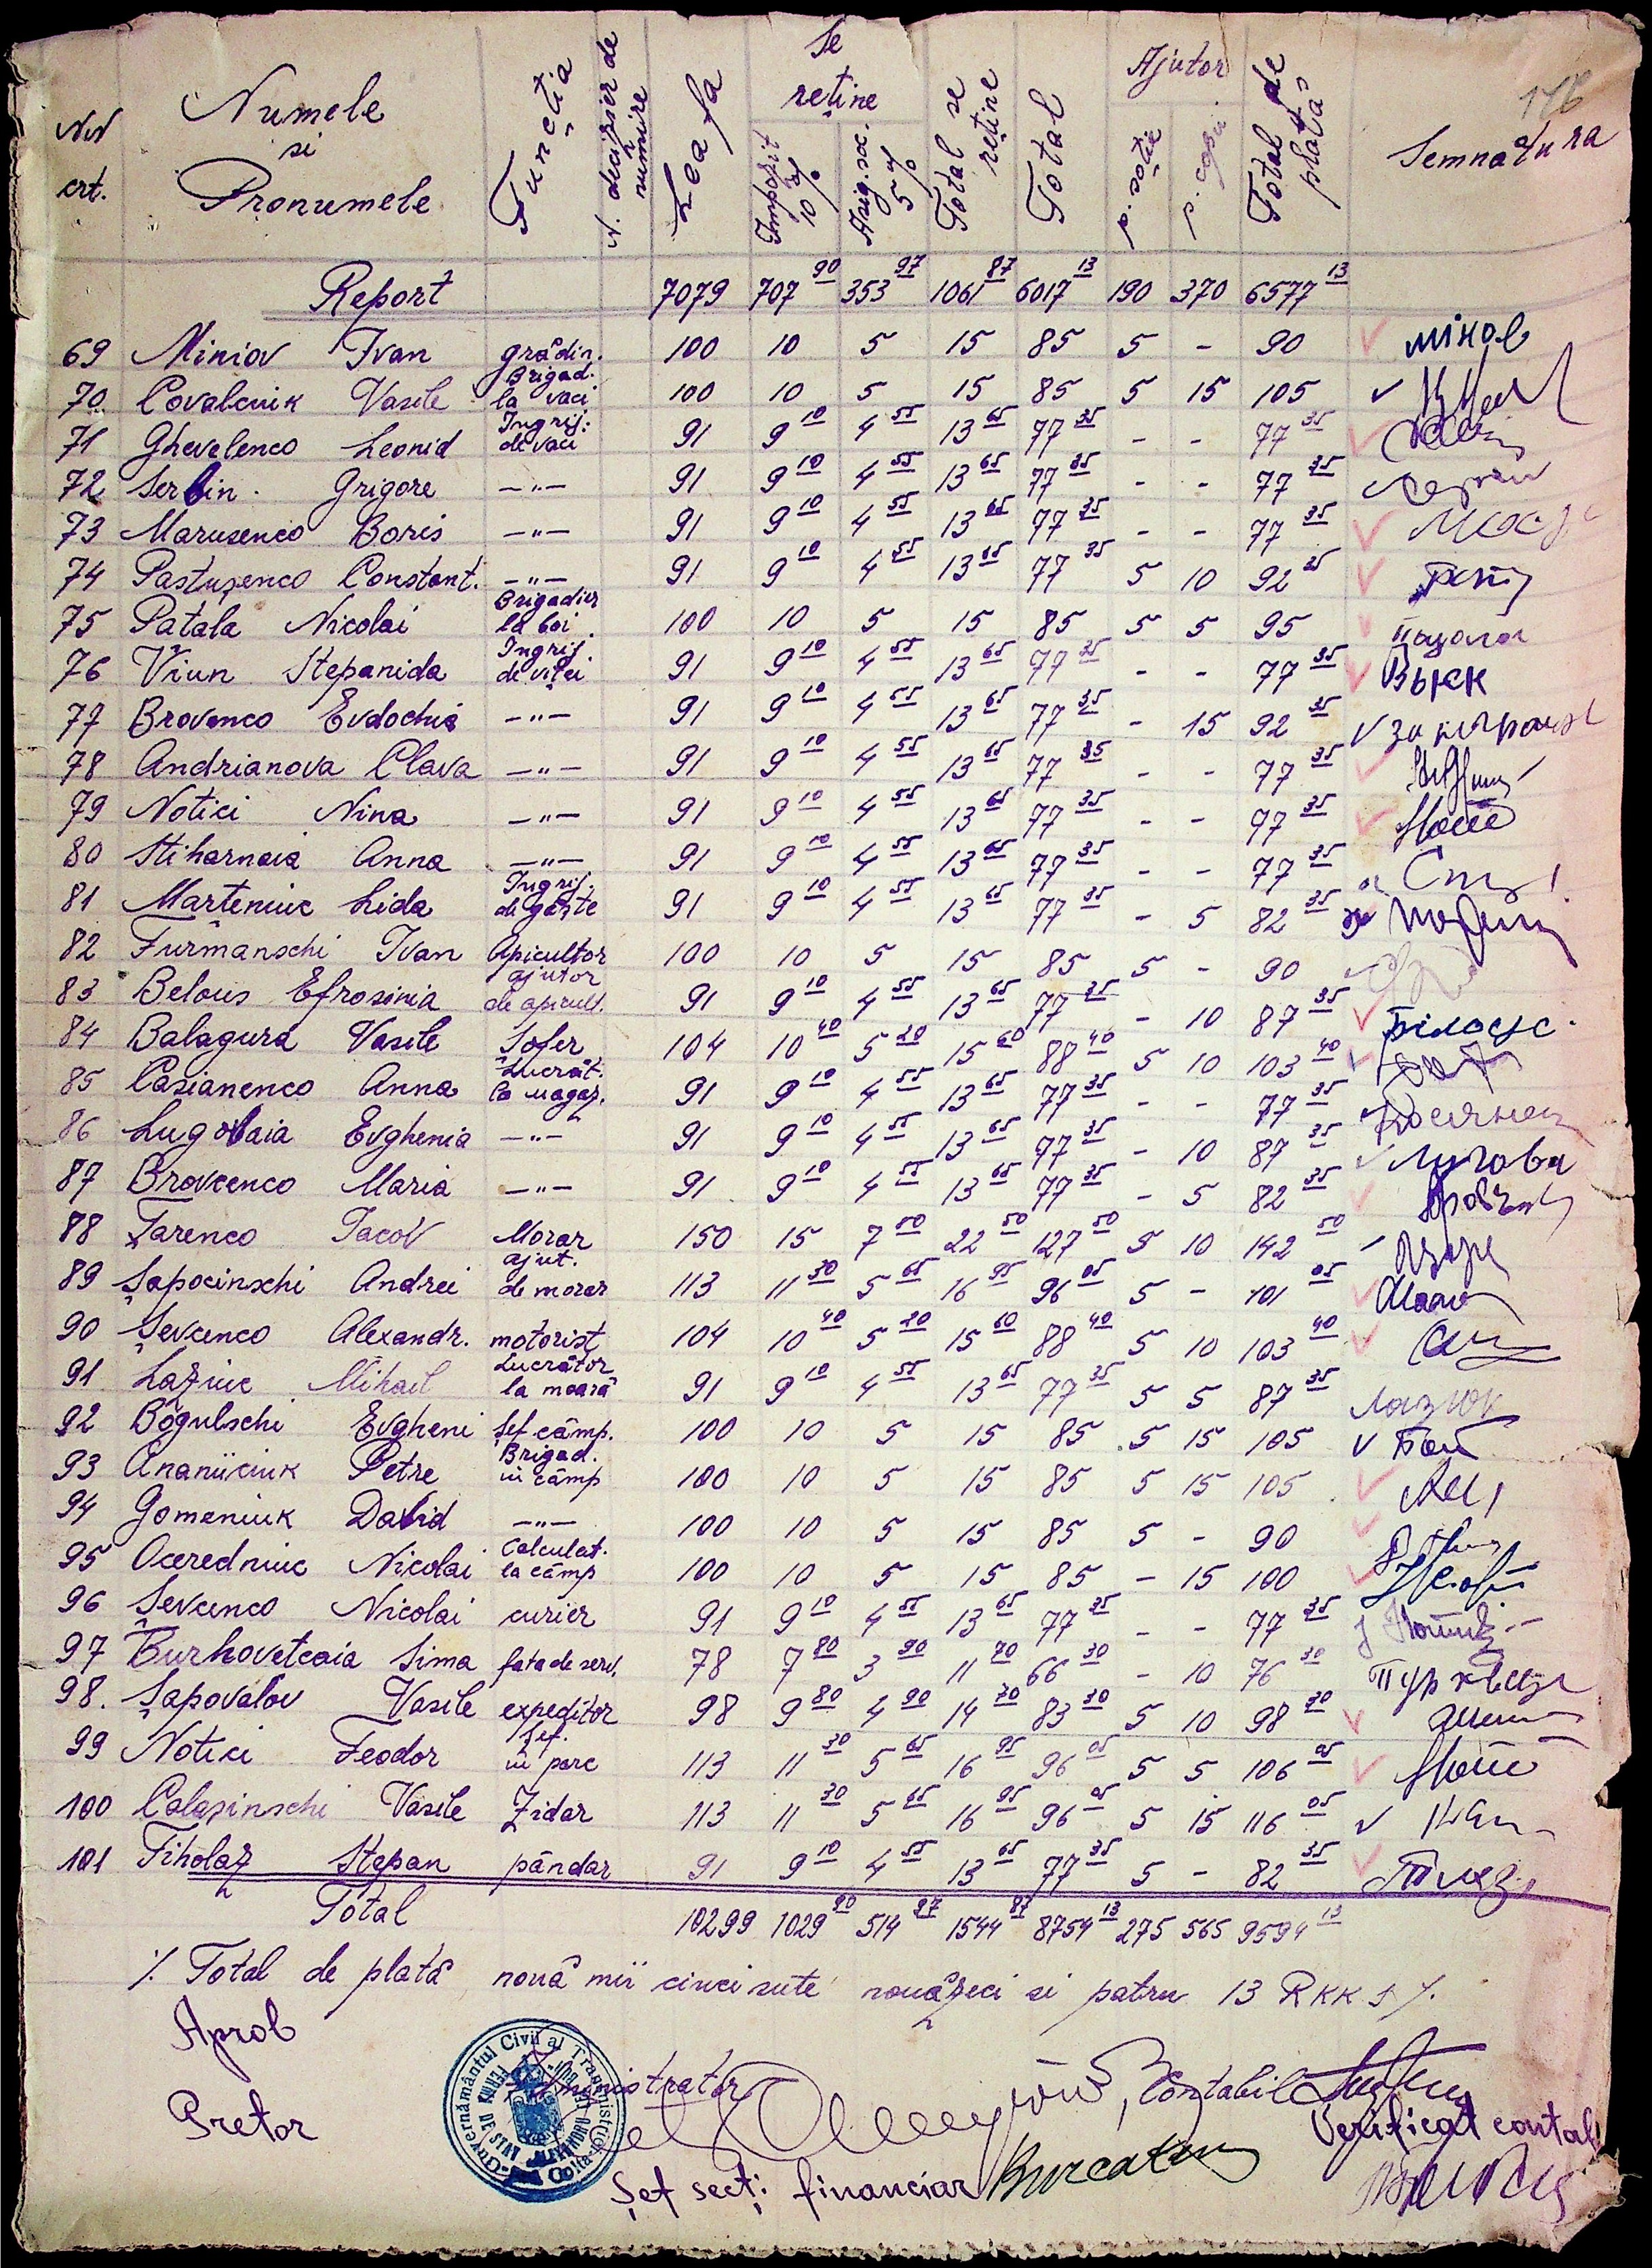 176
Nr. crt. Numele si Pronumele Funcția N. deciziei de numire Leafa Se reține Impozit 10% Asig. soc. 5% Total se reține Total Ajutor p. soție p. copii Total de plată Semnatura
Report 7079 707 90 353 97 1061 87 6017 13 190 370 6577 13
69 Miniov Ivan grădin. 100 10 5 15 85 5 - 90 Мінов
70 Covalciuk Vasile Brigad. la vaci 100 10 5 15 85 5 15 105
71 Ghevelenco Leonid Ingrij. de vaci 91 9 10 4 55 13 65 77 35 - - 77 35
72 Serbin Grigore -"- 91 9 10 4 55 13 65 77 35 - - 77 35
73 Marusenco Boris -"- 91 9 10 4 55 13 65 77 35 - - 77 35
74 Pastușenco Constant. -"- 91 9 10 4 55 13 65 77 35 5 10 92 35
75 Patala Nicolai Brigadier la boi 100 10 5 15 85 5 5 95
76 Viun Stepanida Ingrij. de viței 91 9 10 4 55 13 65 77 35 - - 77 35
77 Brovenco Evdochia -"- 91 9 10 4 55 13 65 77 35 - 15 92 35
78 Andrianova Clava -"- 91 9 10 4 55 13 65 77 35 - - 77 35
79 Notici Nina -"- 91 9 10 4 55 13 65 77 35 - - 77 35
80 Stiharnaia Anna -"- 91 9 10 4 55 13 65 77 35 - - 77 35
81 Marteniuc Lida Ingrij. de gâște 91 9 10 4 55 13 65 77 35 - 5 82 35
82 Furmanschi Ivan Apicultor 100 10 5 15 85 5 - 90
83 Belous Efrosinia ajutor de apicult. 91 9 10 4 55 13 65 77 35 - 10 87 35 Білоус
84 Balagura Vasile Șofer 104 10 40 5 20 15 60 88 40 5 10 103 40
85 Casianenco Anna Lucrăt. la magaz. 91 9 10 4 55 13 65 77 35 - - 77 35
86 Lugovaia Evghenia -"- 91 9 10 4 55 13 65 77 35 - 10 87 35 Лугова
87 Brovcenco Maria -"- 91 9 10 4 55 13 65 77 35 - 5 82 35
88 Țarenco Iacov Morar 150 15 7 50 22 50 127 50 5 10 142 50
89 Șapocinschi Andrei ajut. de morar 113 11 30 5 65 16 95 96 05 5 - 101 05
90 Șevcenco Alexandr. motorist 104 10 40 5 20 15 60 88 40 5 10 103 40
91 Laziuc Mihail Lucrător la moară 91 9 10 4 55 13 65 77 35 5 5 87 35 Лазюк
92 Bogulschi Evgheni șef câmp. 100 10 5 15 85 5 15 105
93 Ananiiciuk Petre Brigad. in câmp 100 10 5 15 85 5 15 105
94 Gomeniuk David -"- 100 10 5 15 85 5 - 90
95 Oceredniuc Nicolai Calculat. la câmp 100 10 5 15 85 - 15 100
96 Sevcenco Nicolai curier 91 9 10 4 55 13 65 77 35 - - 77 35
97 Burhovetcaia Sima fata de serv. 78 7 80 3 90 11 70 66 30 - 10 76 30
98. Șapovalov Vasile expeditor 98 9 80 4 90 14 70 83 30 5 10 98 30
99 Notici Feodor Șef. in parc 113 11 30 5 65 16 95 96 05 5 5 106 05
100 Calașinschi Vasile Zidar 113 11 30 5 65 16 95 96 05 5 15 116 05
101 Tiholaz Stepan pândar 91 9 10 4 55 13 65 77 35 5 - 82 35
Total 10299 1029 90 514 97 1544 87 8754 13 275 565 9594 13
%. Total de plată nouă mii cinci sute nouăzeci si patru 13 RKKS /.
Aprob
Pretor
Guvernământul Civil al Transnistriei
Administrator
Contabil
Verificat contabil
Șef secț. financiar